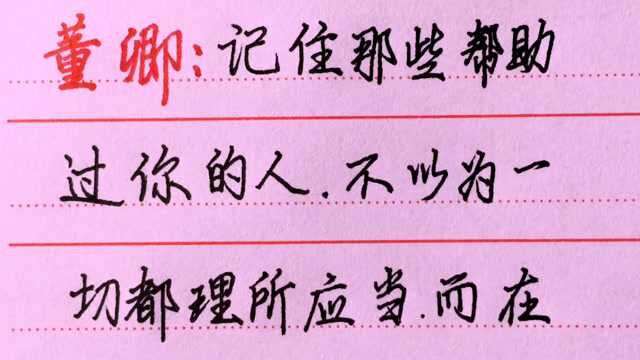 董卿:记住那些帮助
过你的人.不以为一
切都理所应当.而在